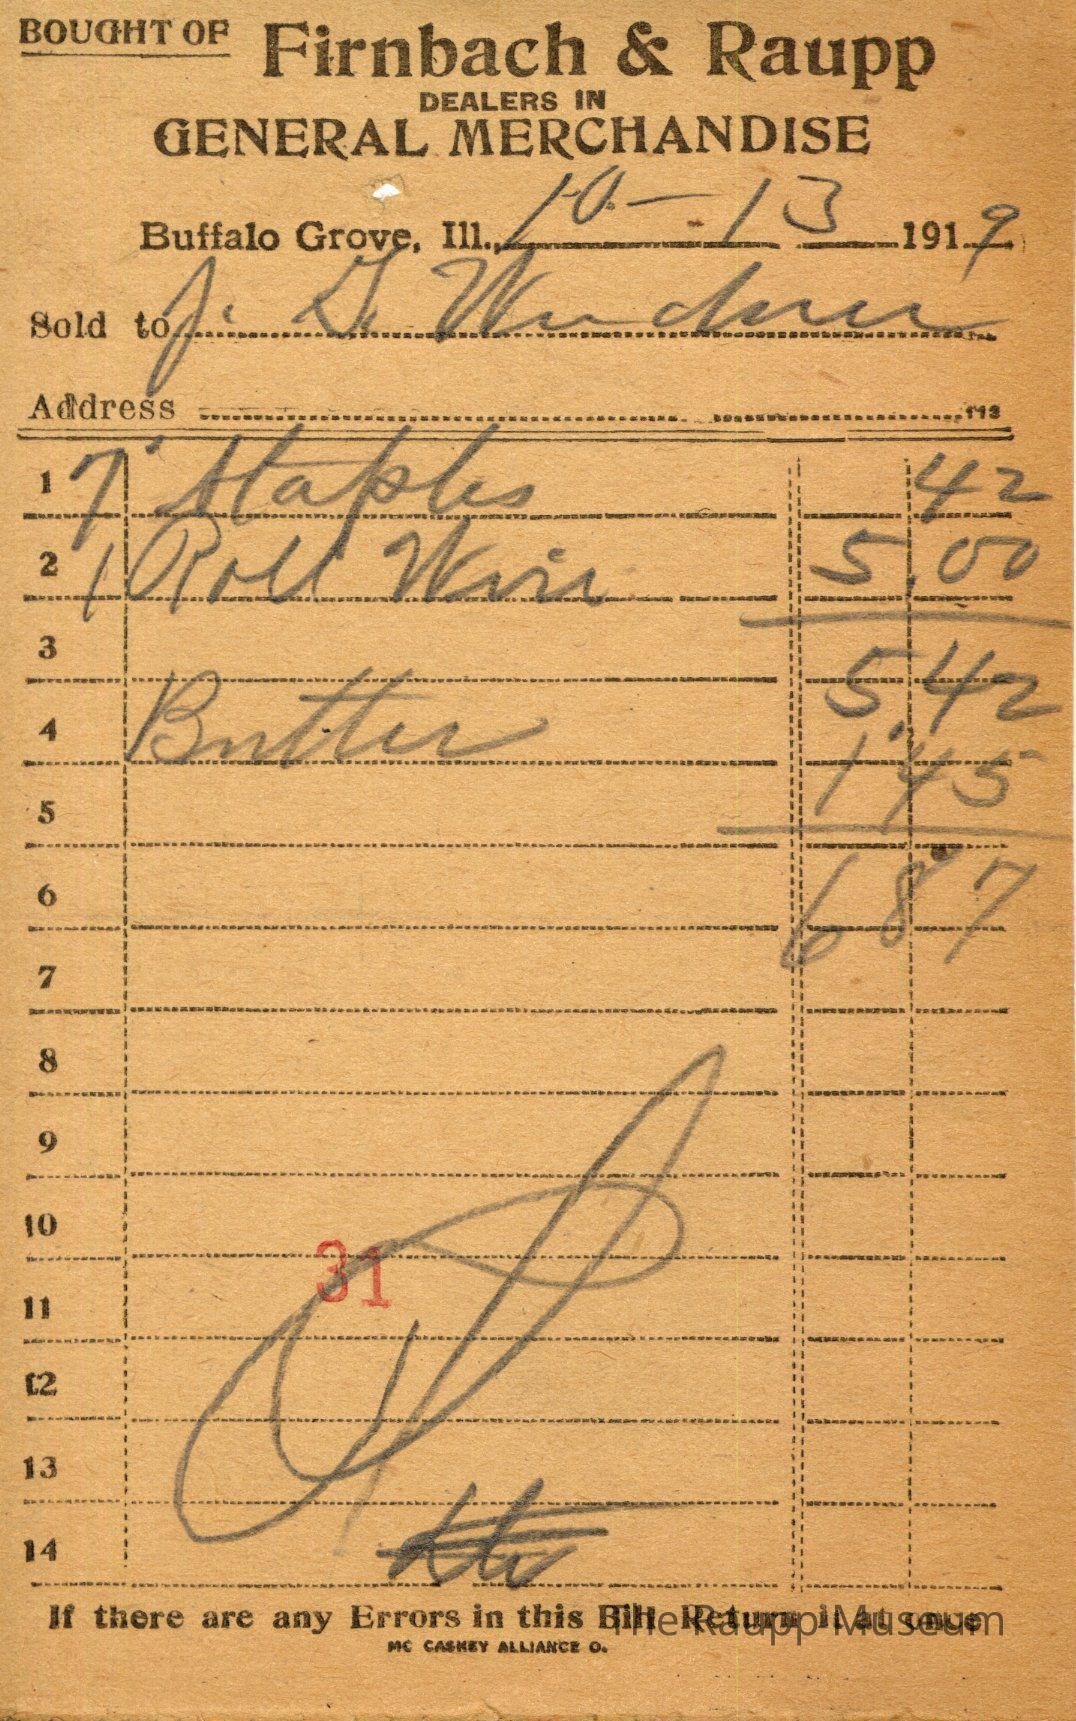 BOUGHT OF Firnbach & Raupp
DEALERS IN
GENERAL MERCHANDISE
Buffalo Grove, Ill. 10-13 1919
Sold to J. D.
Address 113
1 7 Staples 42
2 1 Roll Wire 5.00
3 5.42
4 Butter 1.45
5
6 6 87
7
8
9
10
31
11
12
13
14
If there are any Errors in this Bill Return it at once
The Raupp Museum
MC CASKEY ALLIANCE O.